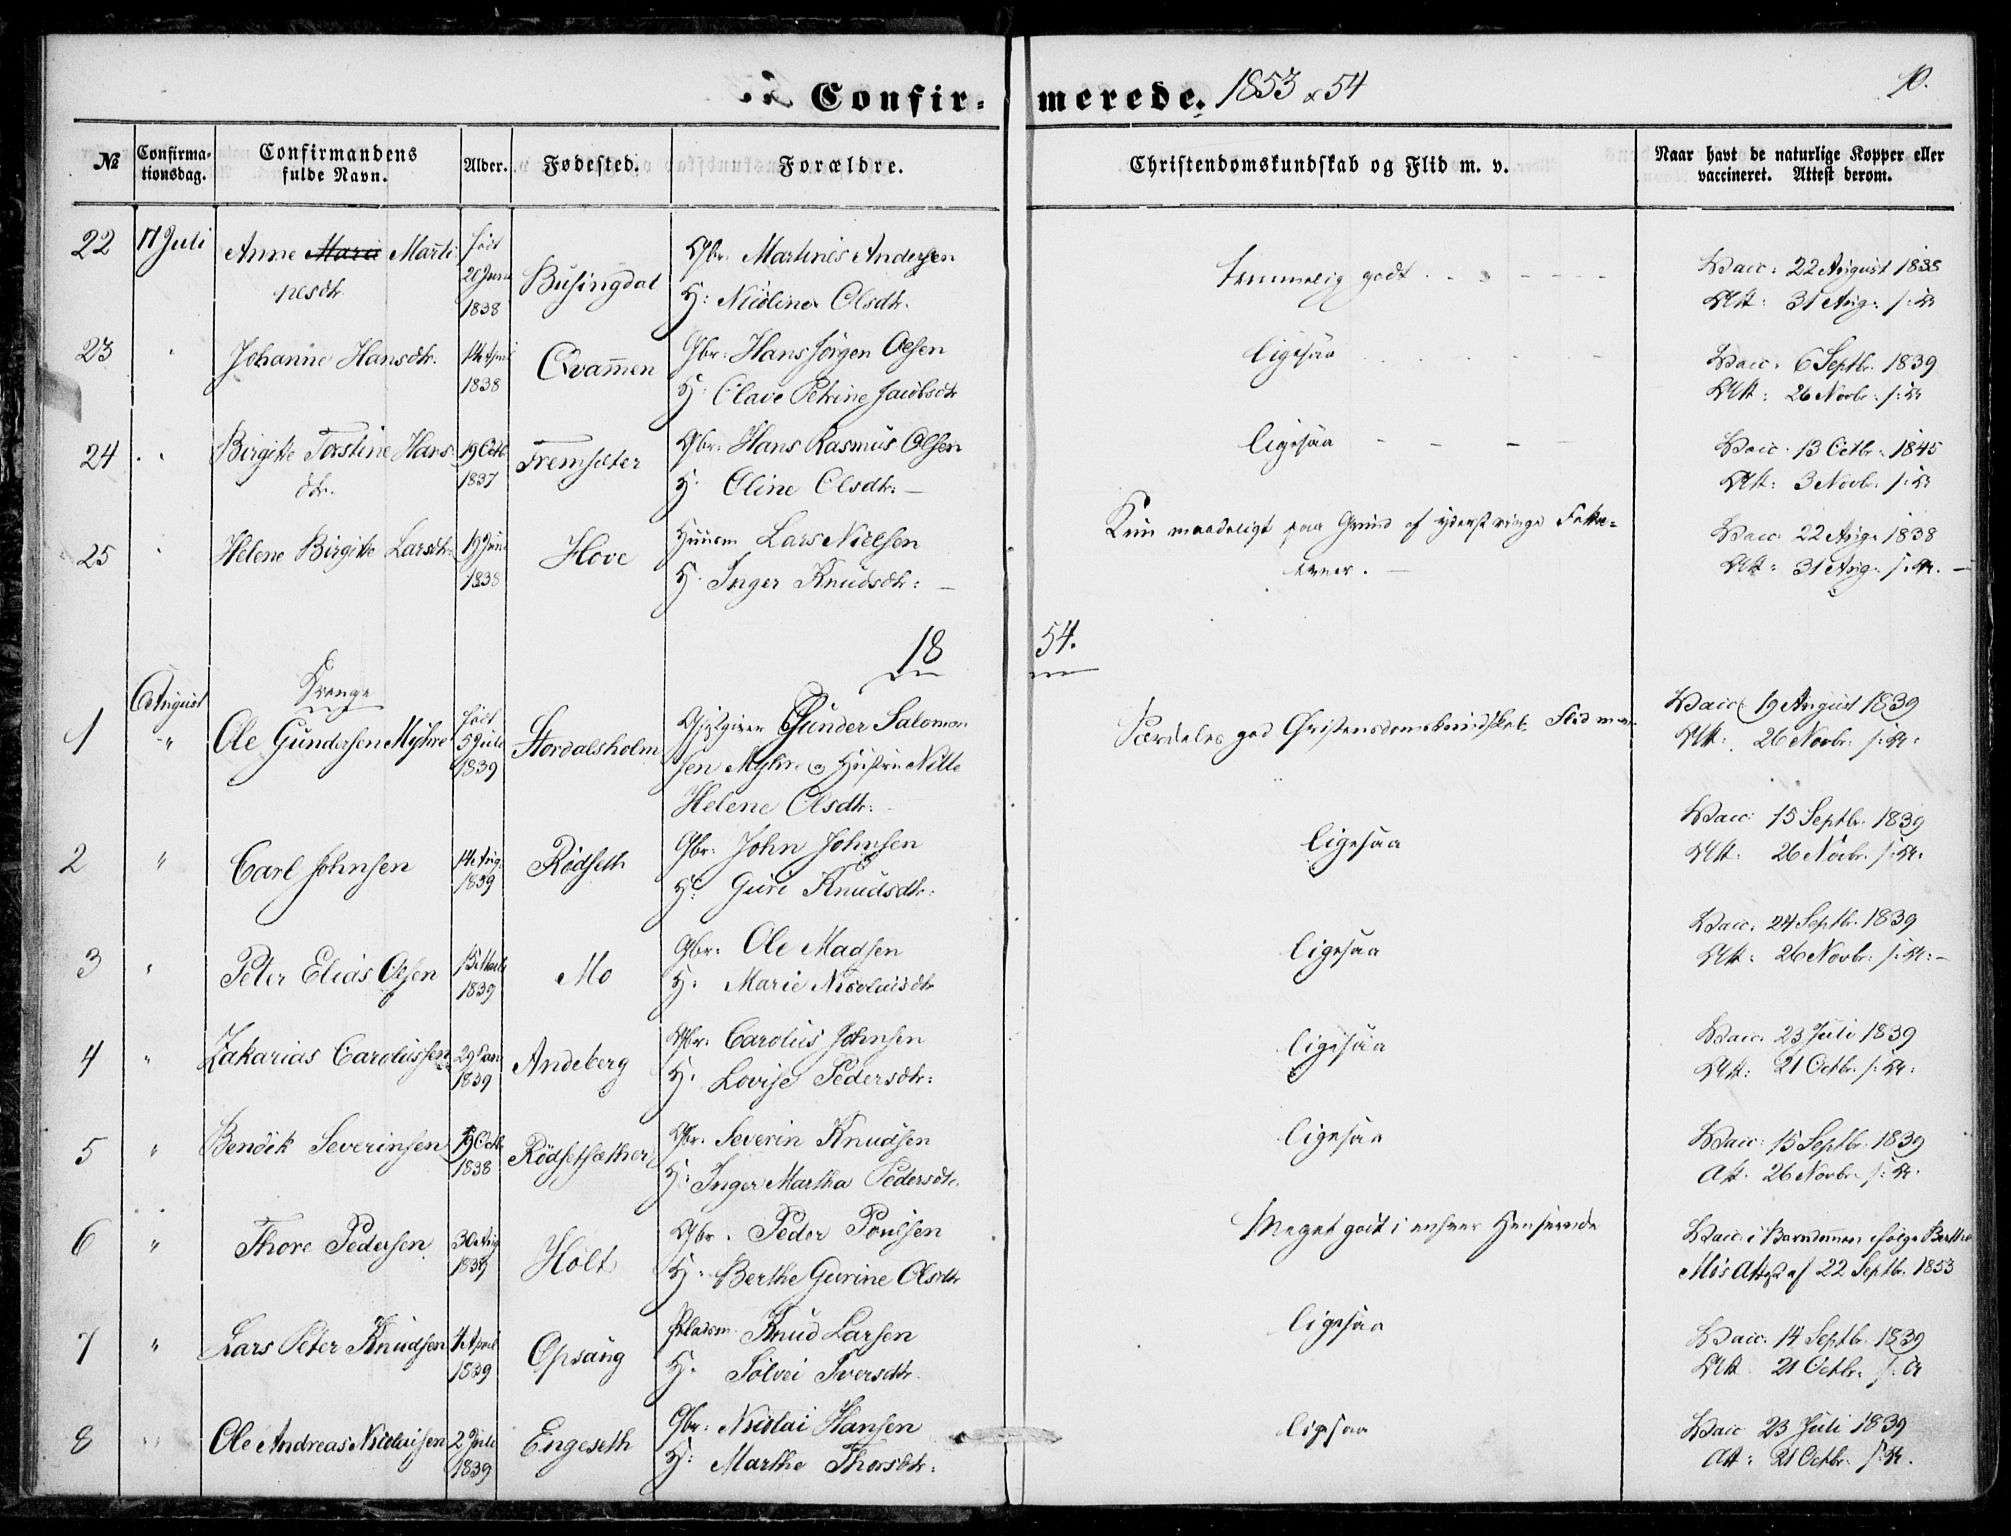 Confirmerede. 1853 & 54
10.
№ Confirmationsdag. Confirmandens fulde Navn. Alder. Fødested. Forældre. Christendomskundskab og Flid m. v. Naar havt de naturlige Kopper eller vaccineret. Attest derom.
22 17 Juli Anne Marie Martinesdtr. født 20 Juni 1838 Busingdal Gbr. Martinus Andersen
H: Nicoline Olsdtr. temmelig godt Vacc: 22 August 1838
Att: 31 Aug:
23 Johanne Hansdtr. 14 April 1838 Qvammen Gbr: Hans Jørgen Olsen
H: Olave Petrine Jacobsdtr ligesaa Vacc: 6 Septbr. 1839
Att: 26 Novbr:
24 Birgitte Torstine Hansdtr. 19 Octb 1837 Fremsæter Gbr: Hans Rasmus Olsen
H: Oline Olsdtr: ligesaa Vacc: 13 Octbr: 1845
Att: 3 Novb:
25 Helene Birgitte Larsdtr: 19 Juni 1838 Hove Huusm Lars Nielsen
H. Inger Knudsdtr: Kun maadeligt paa Grund af yderst ringe
evner. Vacc: 22 Aug: 1838
Att: 31 Aug:
1854.
Drenge
1 August Ole Gundersen Myhre født 5 Juli 1839 Stordalsholm Gunder Salomonsen Myhre og Hustru Nille
Helene Olsdtr: Særdeles god Christendomskundskab Flid m. v. Vacc: 19 August 1839
Att: 26 Novbr:
2 " Carl Johnsen 14 Aug. 1839 Rødseth Gbr: John Johnsen
H: Guri Knudsdtr: ligesaa Vacc: 15 Septbr. 1839
Att: 26 Novbr:
3 " Peter Elias Olsen 15 1839 Mo Gbr: Ole Madsen
H. Marie Nicolaisdtr ligesaa Vacc: 24 Septbr. 1839
Att: 26 Novbr:
4 " Zakarias Carolussen 29 Jan 1839 Andeberg Gbr. Carolus Johnsen
H. Lovise Pedersdtr: ligesaa Vacc: 23 Juli 1839
Att: 21 Octbr.
5 " Bendik Severinsen 19 Octb 1838 Rødsetsæther Gbr. Severin Knudsen
H: Inger Martha Pedersdtr. ligesaa Vacc: 15 Septbr. 1839
Att. 26 Novbr.
6 " Thore Pedersen 30 Aug 1839 Holt Gbr. Peder Poulsen
H. Berthe Gurine Olsdtr Meget godt i enhver Henseende Vacc: i Barndommen ifølge Berthe
Mo's Attest af 22 Septbr. 1853
7 " Lars Peter Knudsen 4 April 1839 Opsang Pladsm. Knud Larsen
H. Solvei Iversdtr. ligesaa Vacc: 14 Septbr. 1839
Att. 21 Octbr.
8 " Ole Andreas Nicolaisen 2 Juli 1839 Engeseth Gbr: Nicolai Hansen
H: Marthe Thorsdtr: ligesaa Vacc. 23 Juli 1839
Att: 21 Octbr.